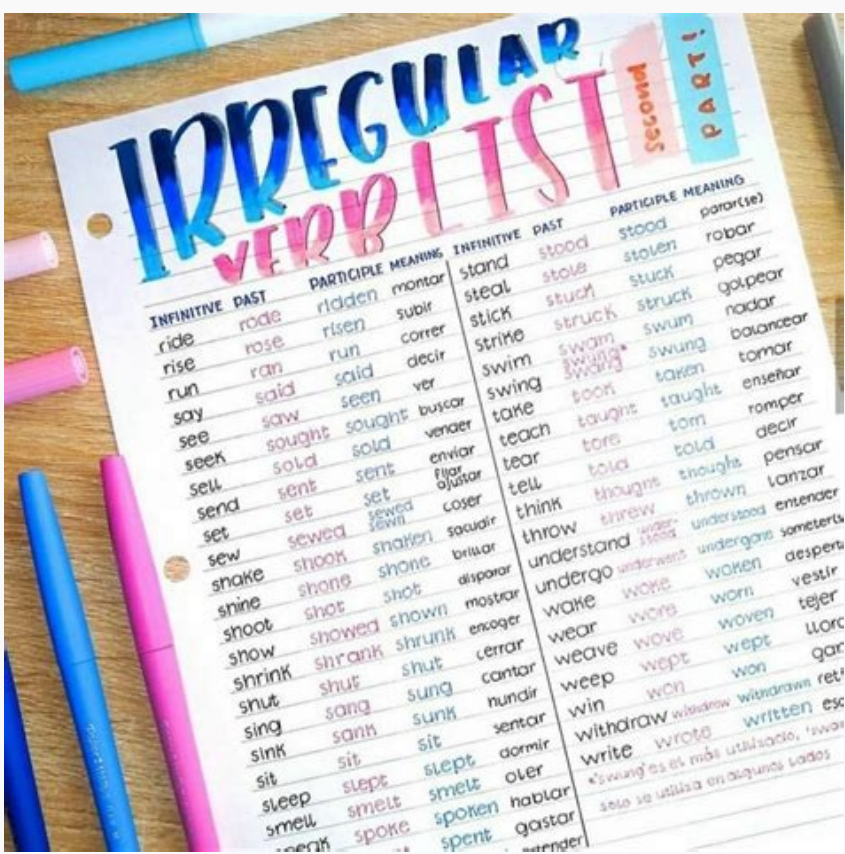 IRREGULAR
VERB LIST
Second
PART!
INFINITIVE PAST PARTICIPLE MEANING
ride rode ridden montar
rise rose risen subir
run ran run correr
say said said decir
see saw seen ver
seek sought sought buscar
sell sold sold vender
send sent sent enviar
set set set fijar ajustar
sew sewed sewed sewn coser
shake shook shaken sacudir
shine shone shone brillar
shoot shot shot disparar
show showed shown mostrar
shrink shrank shrunk encoger
shut shut shut cerrar
sing sang sung cantar
sink sank sunk hundir
sit sit sit sentar
sleep slept slept dormir
smell smelt smelt oler
peak spoke spoken hablar
spent gastar
INFINITIVE PAST PARTICIPLE MEANING
stand stood stood parar(se)
steal stole stolen robar
stick stuck stuck pegar
strike struck struck golpear
swim swam swum nadar
swing swung* swang swung balancear
take took taken tomar
teach taught taught enseñar
tear tore torn romper
tell told told decir
think thought thought pensar
throw threw thrown lanzar
understand under-stood understood entender
undergo underwent undergone someter(s
wake woke woken desperta
wear wore worn vestir
weave wove woven tejer
weep wept wept llora
win won won gan
withdraw withdrawn reti
write wrote written esc
*'swung' es el más utilisado, 'swan
solo se utilisa en algunos lados